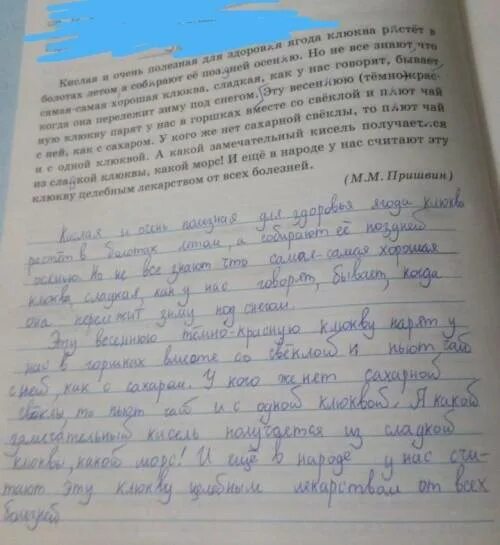 Кислая и очень полезная для здоровья ягода клюква растёт в
болотах летом, а собирают её поздней осенью. Но не все знают, что
самая-самая хорошая клюква, сладкая, как у нас говорят, бывает,
когда она перележит зиму под снегом. Эту весеннюю (тёмно)крас-
ную клюкву парят у нас в горшках вместе со свёклой и пьют чай
с ней, как с сахаром. У кого же нет сахарной свёклы, то пьют чай
и с одной клюквой. А какой замечательный кисель получается
из сладкой клюквы, какой морс! И ещё в народе у нас считают эту
клюкву целебным лекарством от всех болезней.
(М.М. Пришвин)
Кислая и очень полезная для здоровья ягода клюква
растёт в болотах летом, а собирают её поздней
осенью. Но не все знают что самая-самая хорошая
клюква, сладкая, как у нас говорят, бывает, когда
она перележит зиму под снегом.
Эту весеннюю тёмно-красную клюкву парят у
нас в горшках вместе со свёклой и пьют чай
с ней, как с сахаром. У кого же нет сахарной
свёклы то пьют чай и с одной клюквой. А какой
замечательный кисель получается из сладкой
клюквы, какой морс! И ещё в народе у нас счи-
тают эту клюкву целебным лекарством от всех
болезней